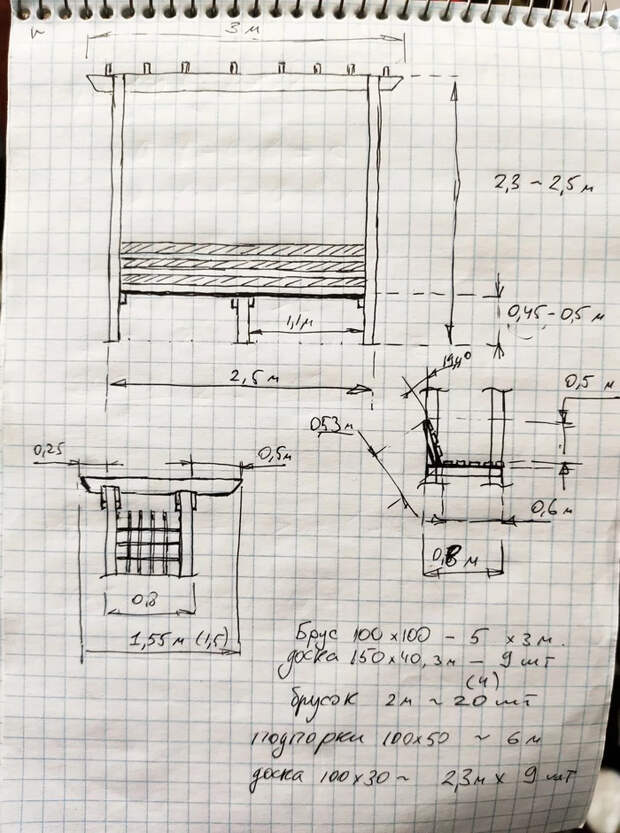 3 м
2,3 ~ 2,5 м
0,45 - 0,5 м
1,1м
2,5 м
19,4°
0,5 м
0,53 м
0,6 м
0,8 м
0,25
0,5м
0,8
1,55 м (1,5)
Брус 100x100 - 5 x 3 м.
доска 150x40, 3м - 9 шт
(4)
брусок 2м ~ 20 шт
подпорки 100x50 ~ 6 м
доска 100x30 ~ 2,3м x 9 шт